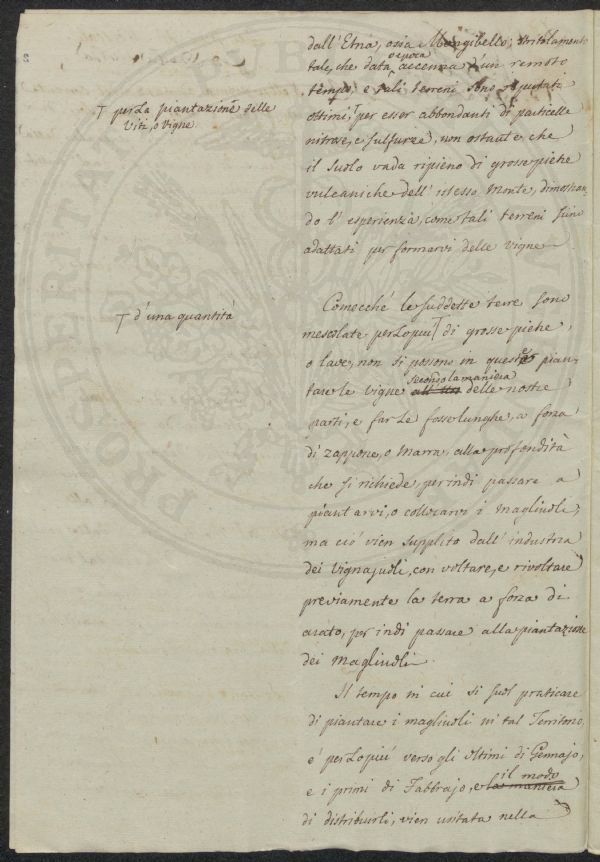 dall'Etna, osia Mongibello; stritolamento
epoca
tale, che data accenna d'un remoto
tempo; e tali terreni sono reputati
ottimi, per esser abbondanti di particelle
nitrose, e sulfuree, non ostante che
il suolo vada ripieno di grosse pietre
vulcaniche dell'istesso Monte, dimostran
do l'esperienza, come tali terreni siino
adattati per formarvi delle vigne
T per la piantazione delle
Viti, o Vigne
Comecché le suddette terre sono
mescolate per lo più T di grosse pietre,
o lave, non si possono in queste pian-
secondo la maniera
tare le vigne delle nostre
parti, e far le fosse lunghe, a forza
di zappone, o marra, alla profondità
che si richiede, per indi passare a
piantarvi, o collocarvi i Magliuoli;
ma ciò vien supplito dall'industria
dei Vignajuoli, con voltare, e rivoltare
previamente la terra a forza di
arato, per indi passare alla piantazione
dei Magliuoli.
T d'una quantità
Il tempo in cui si suol praticare
di piantare i magliuoli in tal Territorio,
è per lo più verso gli ultimi di Gennajo,
il modo
e i primi di Fabbrajo, e la maniera
di distribuirli, vien usitata nella